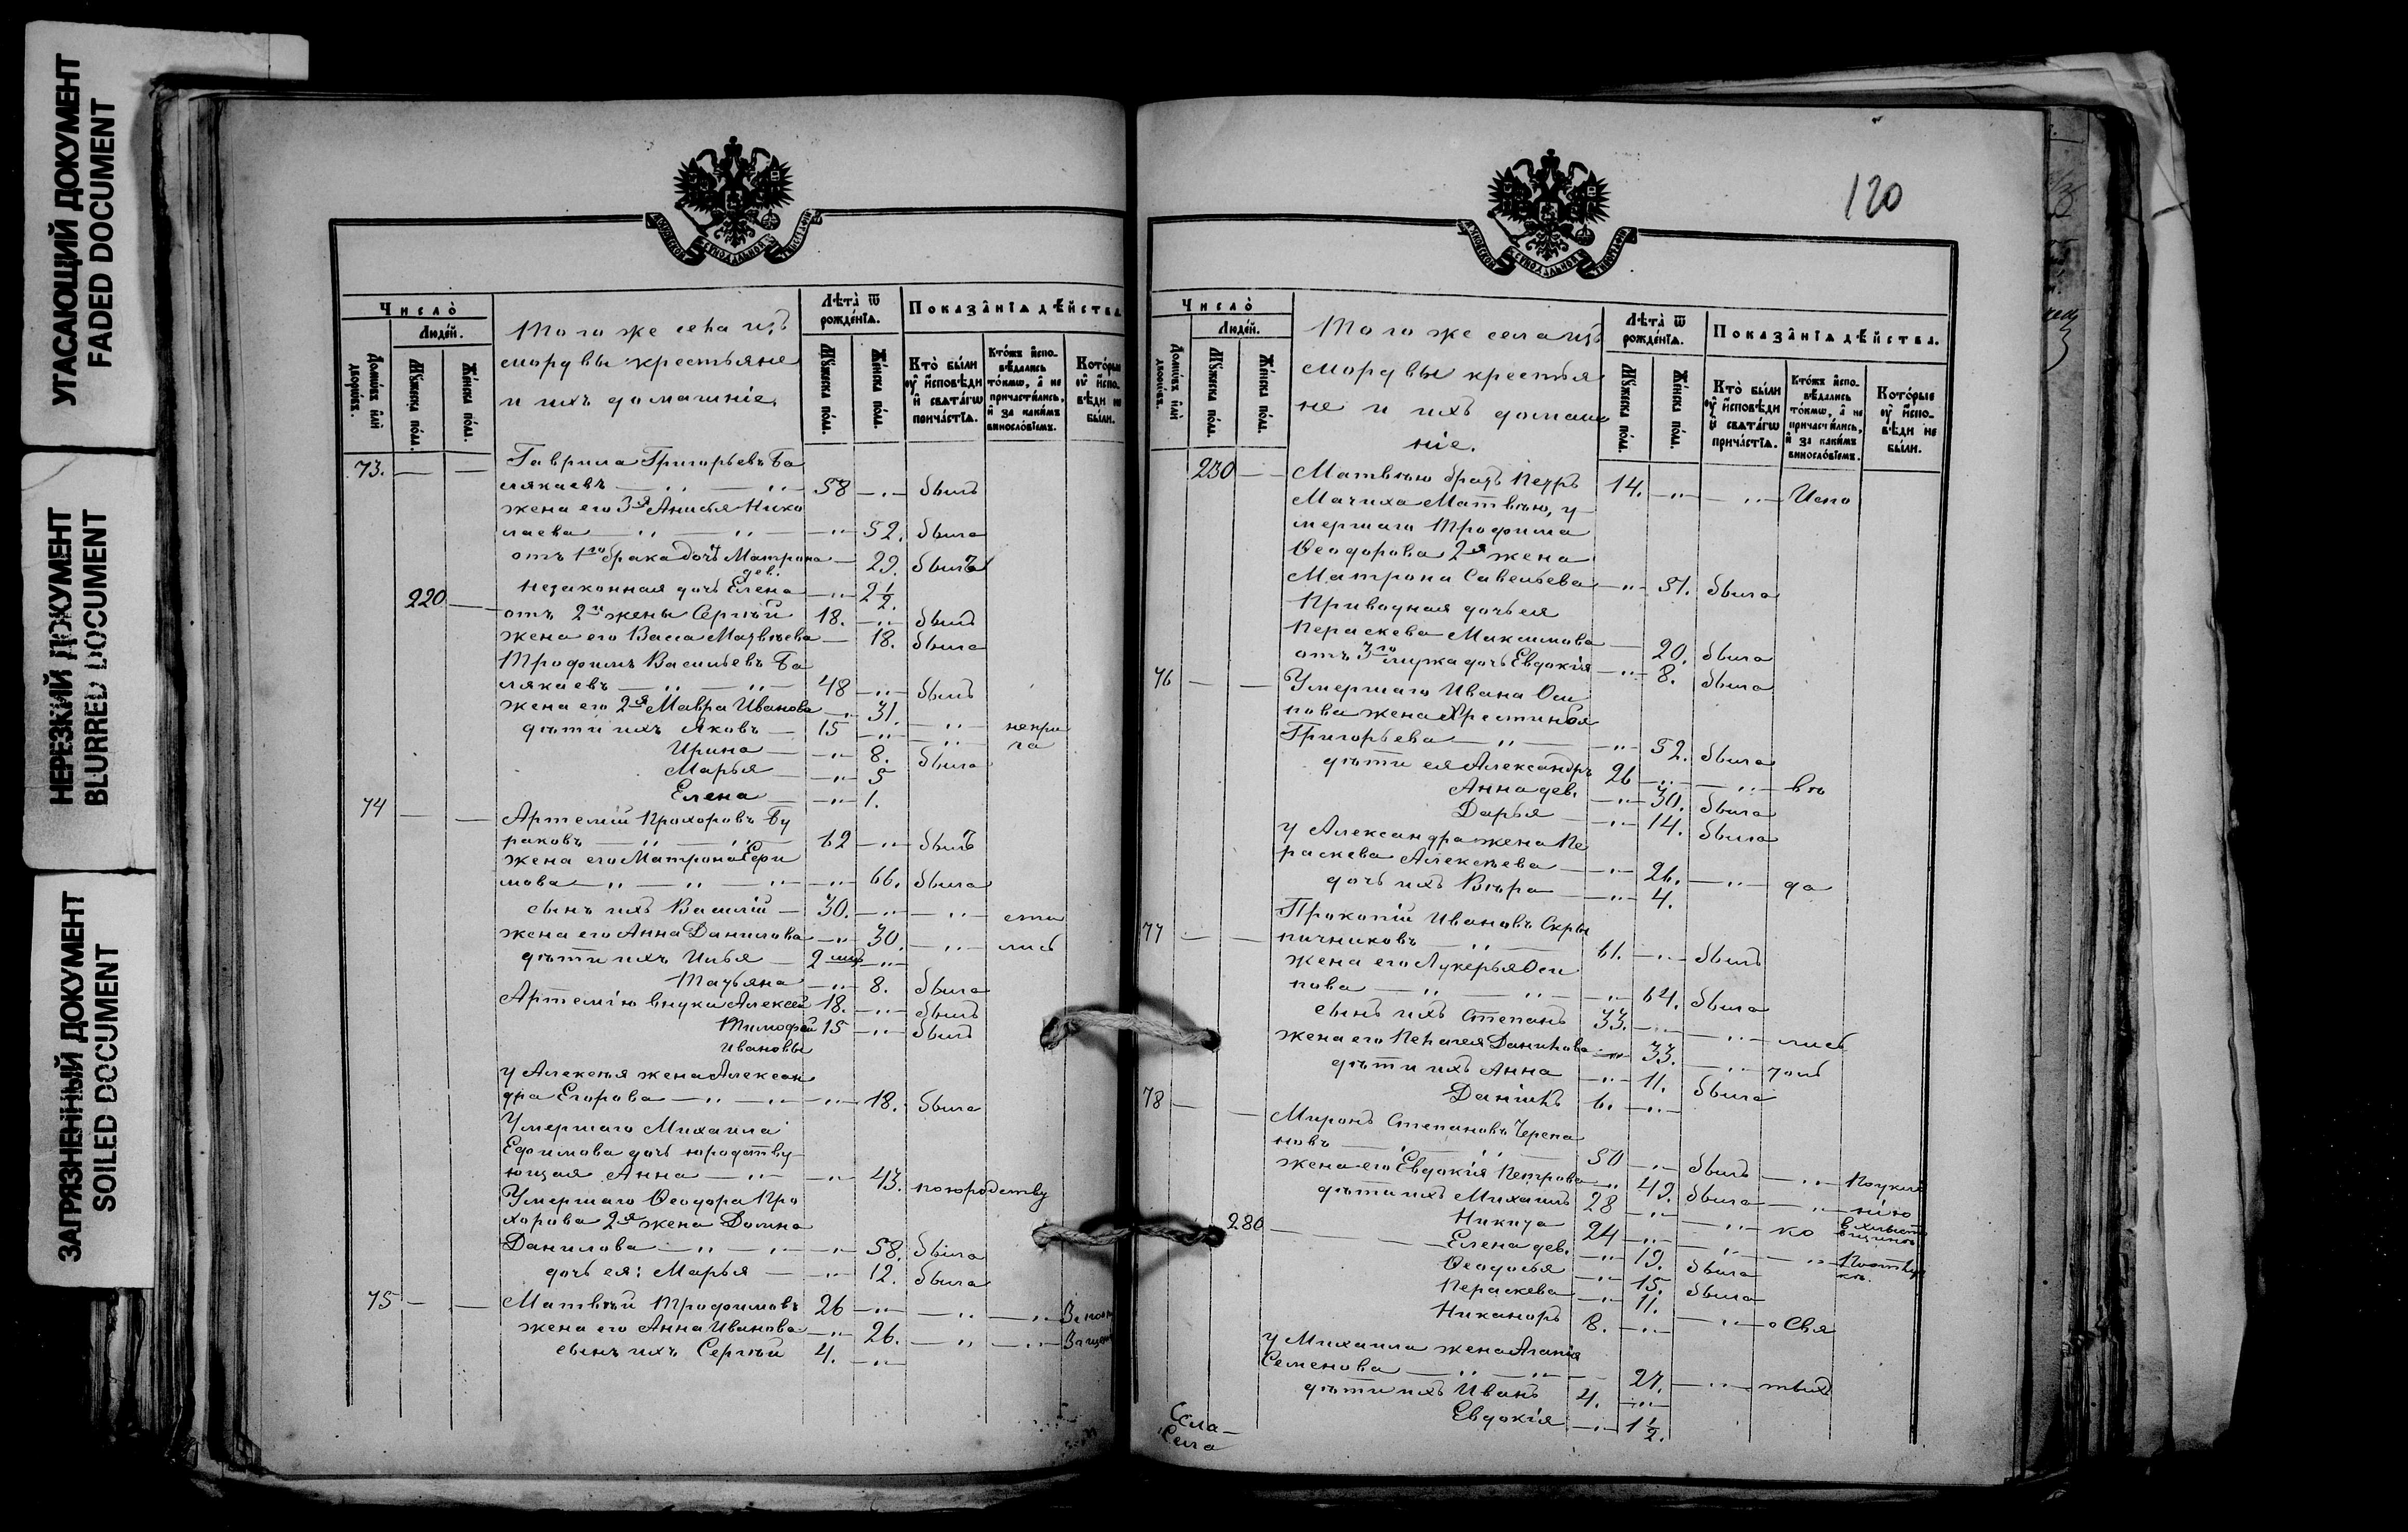 УГАСАЮЩИЙ ДОКУМЕНТ
FADED DOCUMENT
НЕРЕЗКИЙ ДОКУМЕНТ
BLURRED DOCUMENT
ЗАГРЯЗНЕННЫЙ ДОКУМЕНТ
SOILED DOCUMENT
МОСКОВСКОЙ СѴНОДАЛЬНОЙ ТИПОГРАФІИ
Число̀
Люде́й.
Домѡ́въ и҆лѝ дворѡ́въ.
Мꙋ́жеска по́ла.
Же́нска по́ла.
Того же села изъ
мордвы крестьяне
и ихъ домашніе.
Лѣта̀ ѿ рожде́нїѧ.
Мꙋ́жеска по́ла.
Же́нска по́ла.
Показа̑нїѧ дѣ́йства
Кто̀ бы́ли ᲂу҆̀ и҆сповѣ́ди и҆ свѧта́гѡ причⷭ҇тїѧ.
Кто́жъ и҆сповѣ́дались то́кмѡ, а҆ не причасти́лись, и҆ за каки́мъ винословїемъ.
Кото́рые ᲂу҆̀ и҆сповѣ́ди не бы́ли.
73. Гаврила Григорьевъ Ба
лякаевъ 58 былъ
жена его 3я Анисья Нико
лаева 52. была
отъ 1го брака дочь Матрона 29. была
дев.
незаконная дочь Елена 2½.
220 отъ 2й жены Сергѣй 18. былъ
жена его Васса Матвѣева 18. была
Трофимъ Васильевъ Ба
лякаевъ 48 былъ
жена его 2я Мавра Иванова 31.
дѣти ихъ Яковъ 15 непри
ча
Ирина 8. была
Марья 5
Елена 1.
74 Артемій Прохоровъ Бу
раковъ 62 былъ
жена его Матрона Ефи
мова 66. была
сынъ ихъ Василій 30. сти
жена его Анна Данилова 30. лись
дѣти ихъ Илья 2
Татьяна 8. была
Артемію внуки Алексѣй 18. былъ
Тимофей 15 былъ
Ивановы
у Алексѣя жена Алексан
дра Егорова 18. была
Умершаго Михаила
Ефимова дочь юродству
ющая Анна 43. по юродству
Умершаго Ѳеодора Про
хорова 2я жена Домна
Данилова 58. была
дочь ея: Марья 12. была
75 Матвѣй Трофимовъ 26
жена его Анна Иванова 26.
сынъ ихъ Сергѣй 4.
120
МОСКОВСКОЙ СѴНОДАЛЬНОЙ ТИПОГРАФІИ
Число̀
Люде́й.
Домѡ́въ и҆лѝ дворѡ́въ.
Мꙋ́жеска по́ла.
Же́нска по́ла.
Того же села изъ
мордвы крестья
не и ихъ домаш
ніе.
Лѣта̀ ѿ рожде́нїѧ.
Мꙋ́жеска по́ла.
Же́нска по́ла.
Показа̑нїѧ дѣ́йства.
Кто̀ бы́ли ᲂу҆̀ и҆сповѣ́ди и҆ свѧта́гѡ прича́стїѧ.
Кто́жъ и҆сповѣ́дались то́кмѡ, а҆ не причасти́лись, и҆ за каки́мъ винословїемъ.
Кото́рые ᲂу҆̀ и҆сповѣ́ди не бы́ли.
230 Матвѣю братъ Петръ 14. Испо
Мачиха Матвѣю, у
мершаго Трофима
Ѳеодорова 2я жена
Матрона Савельева 51. была
Приводная дочь ея
Параскева Максимова 20. была
отъ 3го мужа дочь Евдокія 8. была
76 Умершаго Ивана Оси
пова жена Христинья
Григорьева 52. была
дѣти ея Александръ 26 вѣ
Анна дев. 30. была
Дарья 14. была
у Александра жена Пе
раскева Алексѣева 26. да
дочь ихъ Вѣра 4.
77 Прокопій Ивановъ Скры
пичниковъ 61. былъ
жена его Лукерья Оси
пова 64. была
сынъ ихъ Степанъ 33. лись
жена его Пелагея Данилова 33.
дѣти ихъ Анна 11. была
Даніилъ 6.
78 Миронъ Степановъ Черепа
новъ 50 былъ
жена его Евдокія Петрова 49. была
дѣти ихъ Михаилъ 28
280 Никита 24 ко
Елена дев. 19. была
Ѳеодосья 15. была
Пераскева 11.
Никаноръ 8. о Свя
у Михаила жена Агапія
Семенова 27. тыхъ
дѣти ихъ Иванъ 4.
Евдокія 1½.
Села
Села